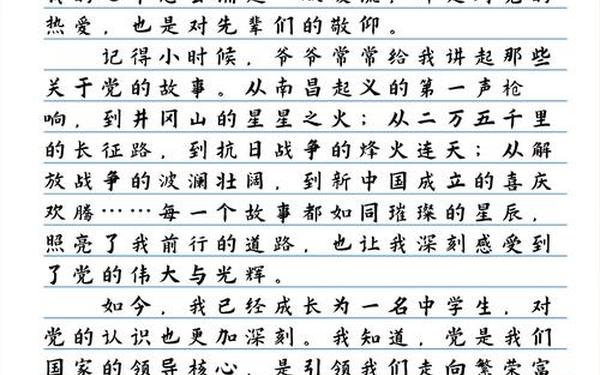 热爱，也是对先辈们的敬仰。
记得小时候，爷爷常常给我讲起那些
关于党的故事。从南昌起义的第一声枪
响，到井冈山的星星之火；从二万五千里
的长征路，到抗日战争的烽火连天；从解
放战争的波澜壮阔，到新中国成立的喜庆
欢腾……每一个故事都如同璀璨的星辰，
照亮了我前行的道路，也让我深刻感受到
了党的伟大与光辉。
如今，我已经成长为一名中学生，对
党的认识也更加深刻。我知道，党是我们
国家的领导核心，是引领我们走向繁荣富